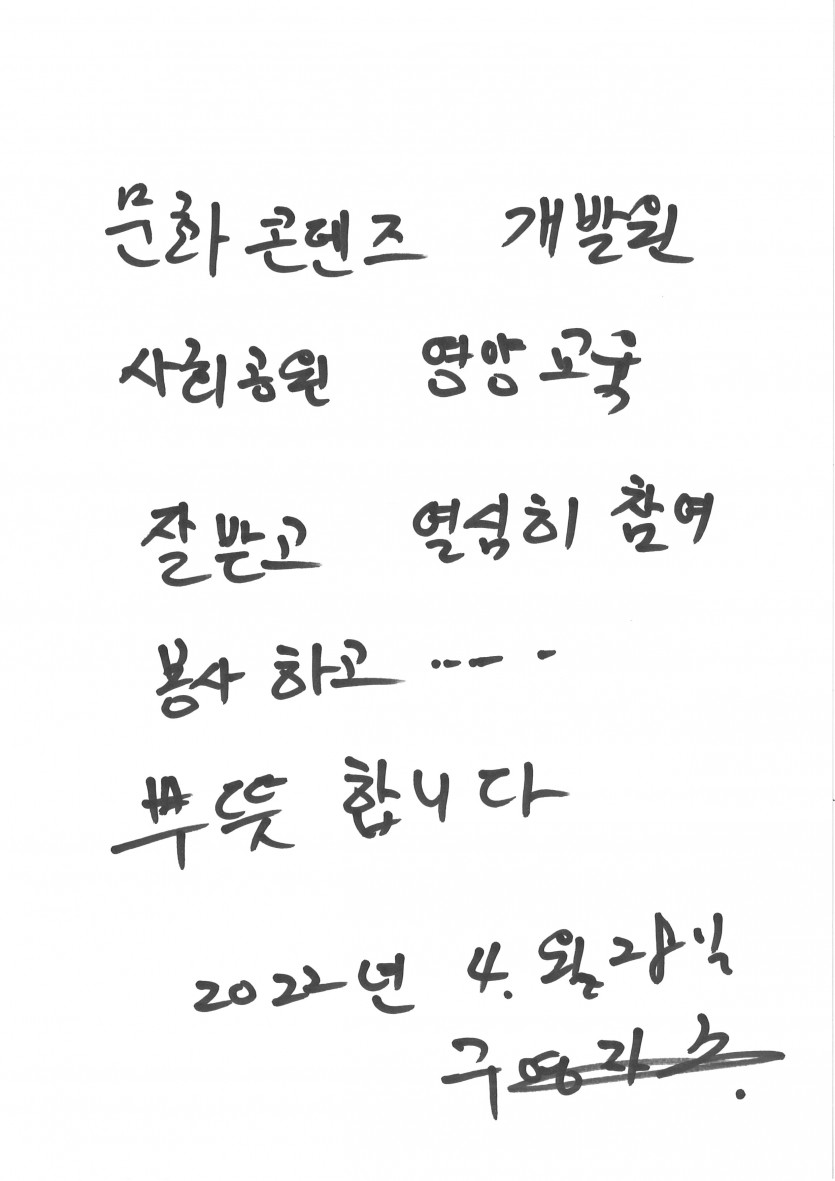 문화 콘텐즈 개발원
사회공원 영양교육
잘 받고 열심히 참여
봉사 하고 ····· ·
뿌뜻 합니다
2022년 4. 월 일
구영자